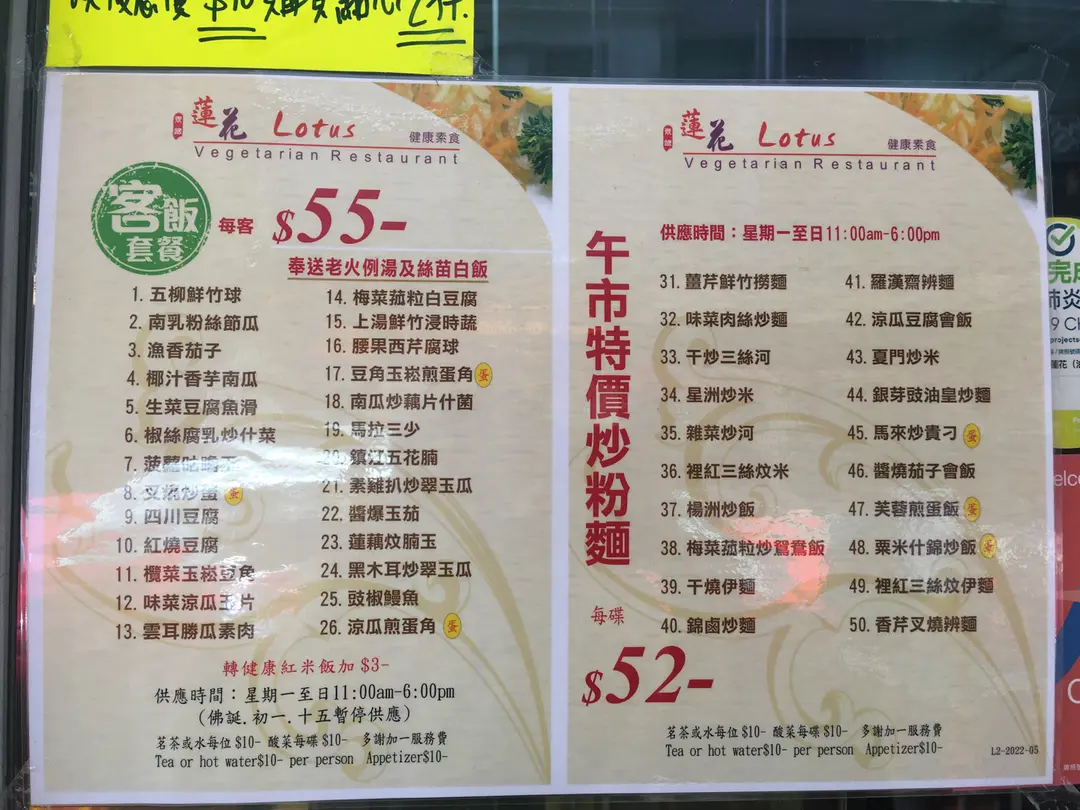 $10
2件.
素語
蓮花 Lotus
健康素食
Vegetarian Restaurant
客飯
套餐
每客 $55-
奉送老火例湯及絲苗白飯
1. 五柳鮮竹球
2. 南乳粉絲節瓜
3. 漁香茄子
4. 椰汁香芋南瓜
5. 生菜豆腐魚滑
6. 椒絲腐乳炒什菜
7. 菠蘿咕嚕玉
8. 叉燒炒蛋 蛋
9. 四川豆腐
10. 紅燒豆腐
11. 欖菜玉崧豆角
12. 味菜涼瓜玉片
13. 雲耳勝瓜素肉
14. 梅菜菰粒白豆腐
15. 上湯鮮竹浸時蔬
16. 腰果西芹腐球
17. 豆角玉崧煎蛋角 蛋
18. 南瓜炒藕片什菌
19. 馬拉三少
20. 鎮江五花腩
21. 素雞扒炒翠玉瓜
22. 醬爆玉茄
23. 蓮藕炆腩玉
24. 黑木耳炒翠玉瓜
25. 豉椒鰻魚
26. 涼瓜煎蛋角 蛋
轉健康紅米飯加 $3-
供應時間：星期一至日11:00am-6:00pm
(佛誕.初一.十五暫停供應)
茗茶或水每位 $10- 酸菜每碟 $10- 多謝加一服務費
Tea or hot water$10- per person Appetizer$10-
蓮花 Lotus
健康素食
Vegetarian Restaurant
午市特價炒粉麵
每碟
$52-
供應時間：星期一至日11:00am-6:00pm
31. 薑芹鮮竹撈麵
32. 味菜肉絲炒麵
33. 干炒三絲河
34. 星洲炒米
35. 雜菜炒河
36. 裡紅三絲炆米
37. 楊洲炒飯
38. 梅菜菰粒炒鴛鴦飯
39. 干燒伊麵
40. 錦鹵炒麵
41. 羅漢齋辨麵
42. 涼瓜豆腐會飯
43. 夏門炒米
44. 銀芽豉油皇炒麵
45. 馬來炒貴刁 蛋
46. 醬燒茄子會飯
47. 芙蓉煎蛋飯 蛋
48. 粟米什錦炒飯 蛋
49. 裡紅三絲炆伊麵
50. 香芹叉燒辨麵
茗茶或水每位 $10- 酸菜每碟 $10- 多謝加一服務費
Tea or hot water$10- per person Appetizer$10-
L2-2022-05